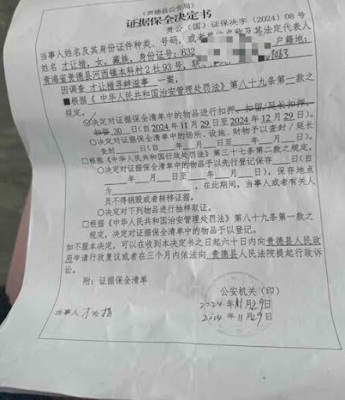 （贵德县公安局）
证据保全决定书
贵公（国）证保决字〔2024〕08号
当事人姓名及其身份证件种类、号码，或者单位名称及其法定代表人
姓名 才让措，女，藏族，身份证号：632 户籍地：
青海省贵德县河西镇本科村2社93号，联 1463
因调查 才让措寻衅滋事 一案，
根据《中华人民共和国治安管理处罚法》第八十九条第一款之
规定，
决定对证据保全清单中的物品进行扣押、扣留/延长扣押、
扣留 30 日（自 2024年11月29日至 2024年12月29日）。
决定对证据保全清单中的场所、设施、财物予以查封/延长
查封 日（自 年 月 日至 年 月 日）。
□根据《中华人民共和国行政处罚法》第三十七条第二款之规定，
决定对证据保全清单中的物品予以先行登记保存 日（自
年 月 日至 年 月 日），保存地点
为 ，在此期间，当事人或者有关人
员不得销毁或者转移证据。
□决定对下列物品进行抽样取证。
□根据《中华人民共和国治安管理处罚法》第八十九条第一款之
规定，决定对证据保全清单中的物品予以登记。
如不服本决定，可以在收到本决定书之日起六十日内向贵德县人民政
府申请行政复议或者在三个月内依法向 贵德县 人民法院提起行政诉
讼。
附：证据保全清单
公安机关（印）
2024年11月29日
当事人 才让措
2024 11 29日